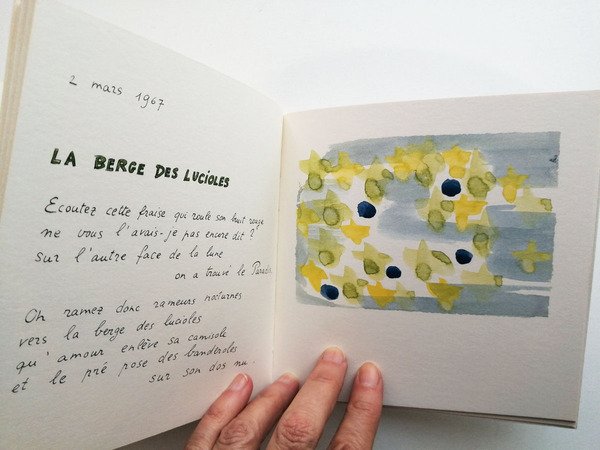 2 mars 1967
LA BERGE DES LUCIOLES
Ecoutez cette fraise qui roule son bruit rouge
ne vous l'avais-je pas encore dit ?
sur l'autre face de la lune
on a trouvé le Paradis
Oh ramez donc rameurs nocturnes
vers la berge des lucioles
qu'amour enlève sa camisole
et le pré pose des banderoles
sur son dos nu.